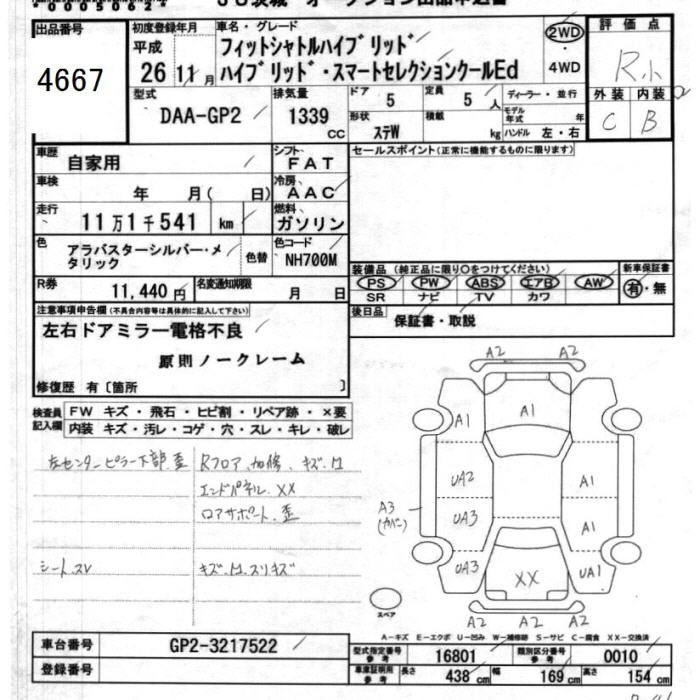 出品番号
4667
初度登録年月
平成
26 11月
車名・グレード
フィットシャトルハイブリッド
ハイブリッド・スマートセレクションクールEd
2WD
・
4WD
評価点
R小
外装 内装
C B
型式
DAA-GP2
排気量
1339
cc
ドア
5
定員
5 人
形状
ステW
積載
kg
ディーラー・並行
モデル年式 年
ハンドル 左・右
車歴
自家用
シフト
FAT
セールスポイント(正常に機能するものに限ります)
車検
年 月( 日)
冷房
AAC
走行
11万1千541 km
燃料
ガソリン
色
アラバスターシルバー・メタリック
色替
色コード
NH700M
装備品(純正品に限り○をつけてください)
PS PW ABS エアB AW
SR ナビ TV カワ
新車保証書
有・無
R券
11,440円
名変通知期限
月 日
後日品
保証書・取説
注意事項申告欄(不具合内容等は具体的に記入して下さい)
左右ドアミラー電格不良
原則ノークレーム
修復歴 有〔箇所 〕
検査員記入欄
FW キズ・飛石・ヒビ割・リペア跡・×要
内装 キズ・汚レ・コゲ・穴・スレ・キレ・破レ
左センターピラー下部 歪
Rフロア、加修、キズ、凹
エンドパネル XX
ロアサポート 歪
シートスレ
キズ、凹、スリキズ
A2 A2
A1 A1
UA2 A1
A3
(カバー)
UA3 A1
UA3 XX UA1
A2 A2 A2
スペア
A-キズ E-エクボ U-凹み W-補修跡 S-サビ C-腐食 XX-交換済
車台番号
GP2-3217522
登録番号
型式指定番号
参考
16801
類別区分番号
参考
0010
車庫証明用
参考
長さ
438 cm
幅
169 cm
高さ
154 cm